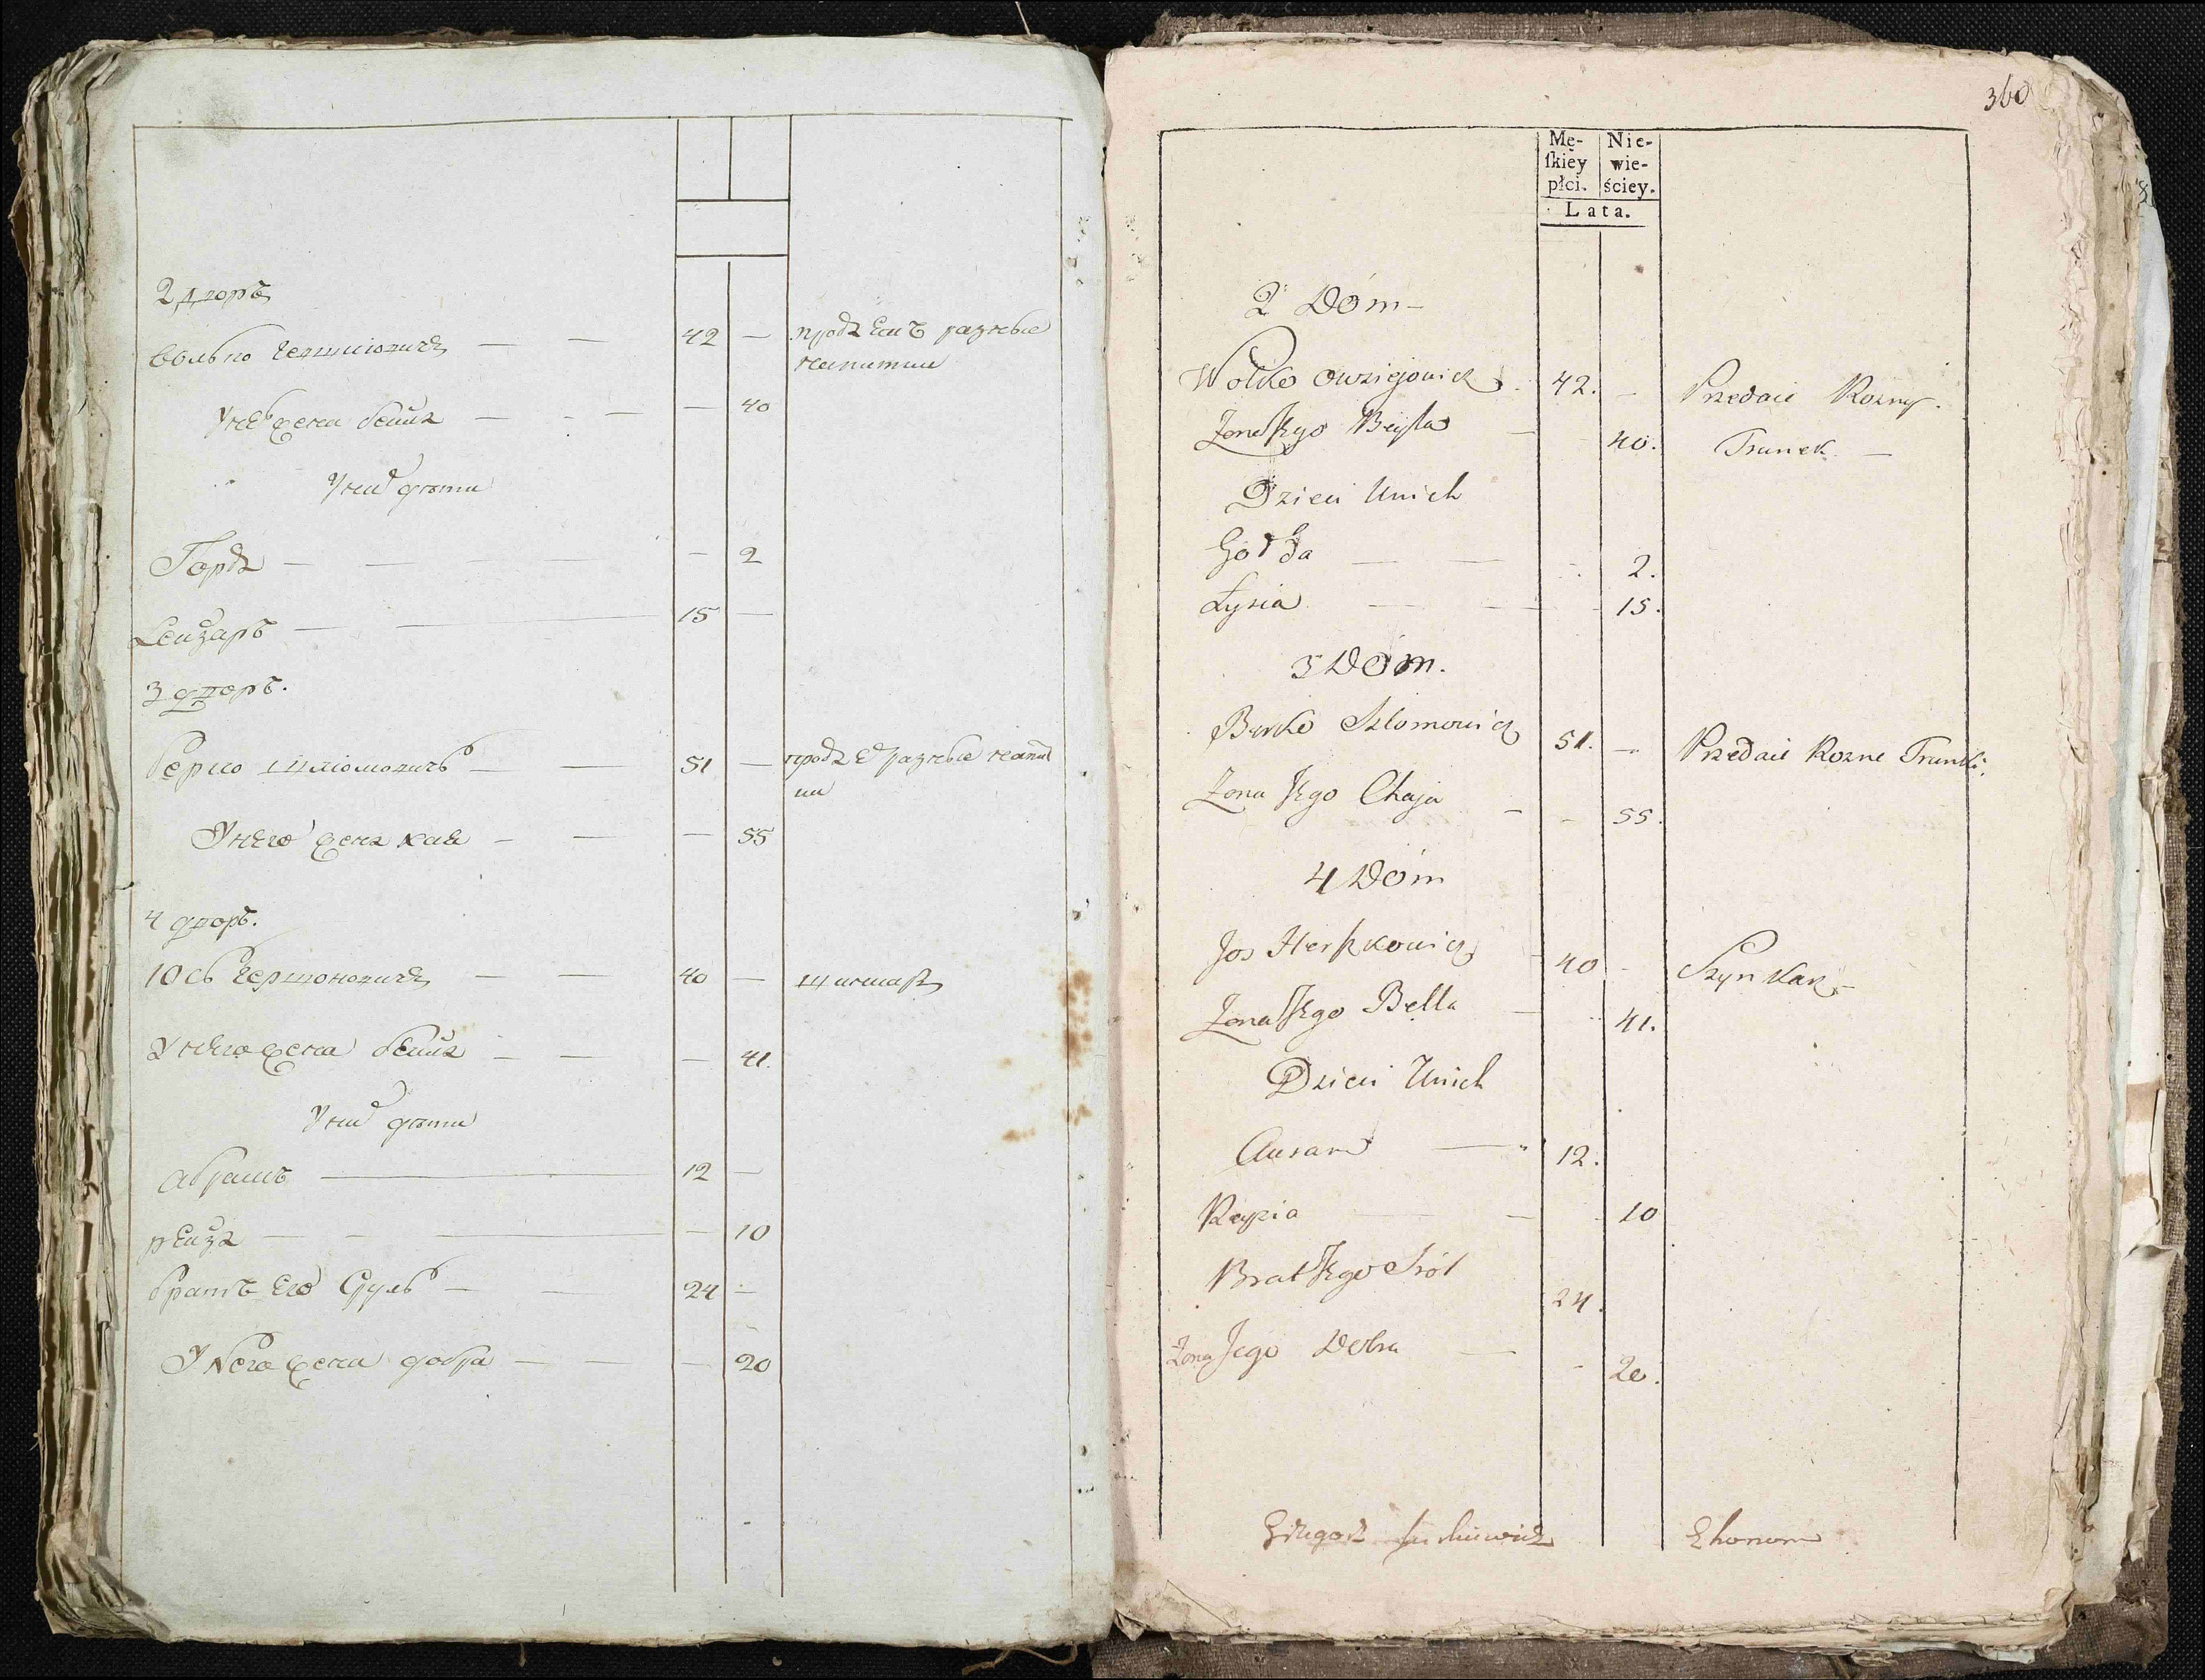 2 дворъ
Волько
42 — продаетъ разные
напитки
У нево жена Бейла — — — 40
У них дети
Горда — — — — 2
Лейзаръ — — 15 —
3 дворъ.
Берко Шліомовичь — — 51 — продае разные напит
ки
У него жена Хая — — — 55
4 дворъ.
Юсь Гершоновичъ — — 40 — шинкаръ
У него жена Бейла — — — 41.
У них дети
Абрамъ — 12 —
Рейза — — — — 10
братъ Его Сруль — — 24 —
У Него жена Добра — — — 20
360
Mę-
ſkiey
płci.
Nie-
wie-
ściey.
Lata.
2 Dóm —
Wolko 42. — Przedaie Rozny.
Zona Jego Beyla — — 40. Trunek. —
Dzieci Unich
Godda — — 2.
Lyzia — — — 15.
3 Dóm.
Berko Szlomowicz 51. — Przedaie Rozne Trunki.
Zona Jego Chaja — — 55.
4 Dóm
Jos Herszkowicz — 40 — Szynkarz —
Zona Jego Bella — 41.
Dzieci Unich
— 12.
Reyzia — — 10
Brat Jego Sról 24.
Zona Jego Dobra — — 20.
Ekonom